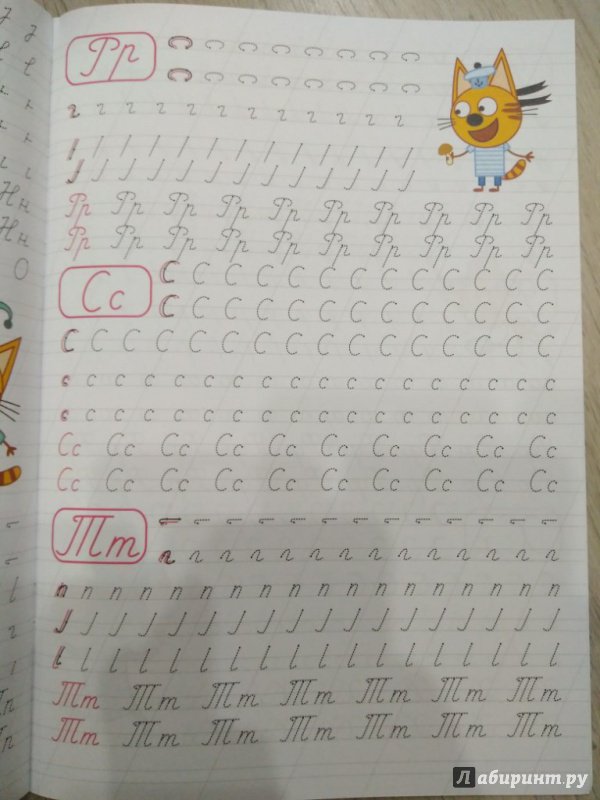 Нн
Нн
О
Рр
Рр Рр Рр Рр Рр Рр Рр Рр Рр Рр
Рр Рр Рр Рр Рр Рр Рр Рр Рр Рр
Сс
С С С С С С С С С С С С С
С С С С С С С С С С С С С
С С С С С С С С С С С С С С С С
с с с с с с с с с с с с с с с с с с
с с с с с с с с с с с с с с с с с с
Сс Сс Сс Сс Сс Сс Сс Сс Сс Сс
Сс Сс Сс Сс Сс Сс Сс Сс Сс Сс
Тт
п п п п п п п п п п п п п п п п п п
Тт Тт Тт Тт Тт Тт Тт
Тт Тт Тт Тт Тт Тт Тт
Лабиринт.ру